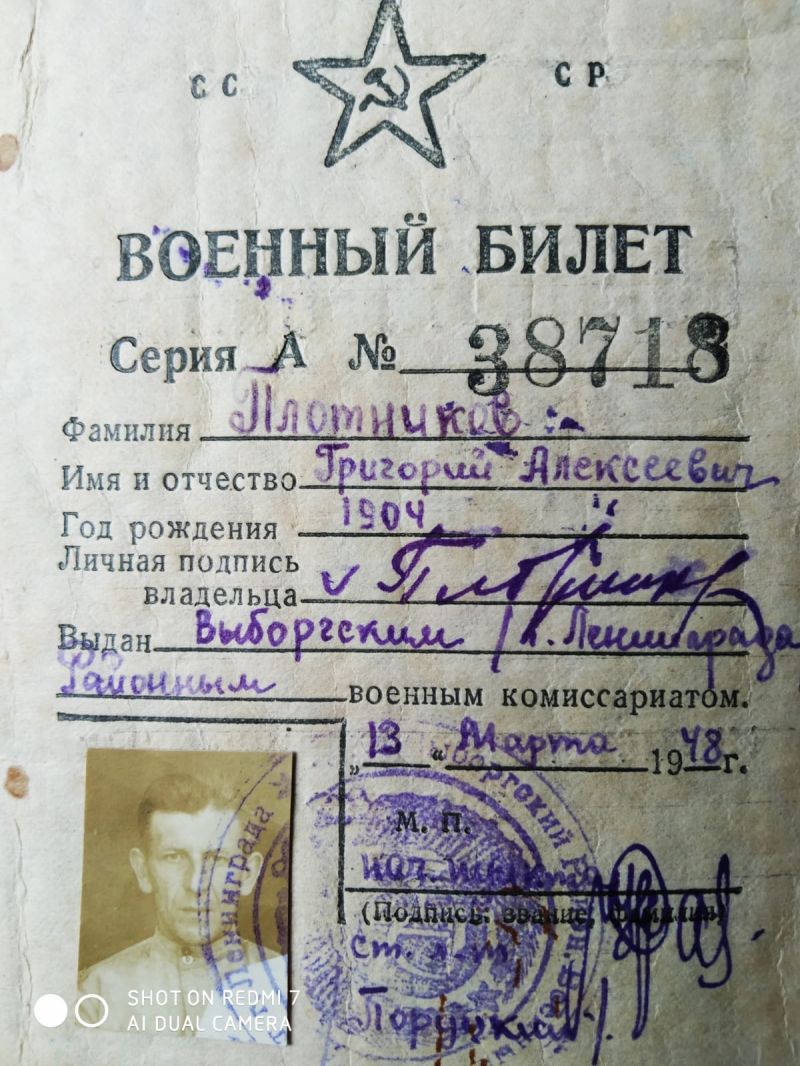 СС СР
ВОЕННЫЙ БИЛЕТ
Серия А № 38718
Фамилия Плотников
Имя и отчество Григорий Алексеевич
Год рождения 1904
Личная подпись
владельца
Выдан Выборгским г. Ленинграда
Районным военным комиссариатом.
„13 “ Марта 1948 г.
М. П.
(Подпись, звание, фамилия)
Ст. л-т
Ленинграда
SHOT ON REDMI 7
AI DUAL CAMERA